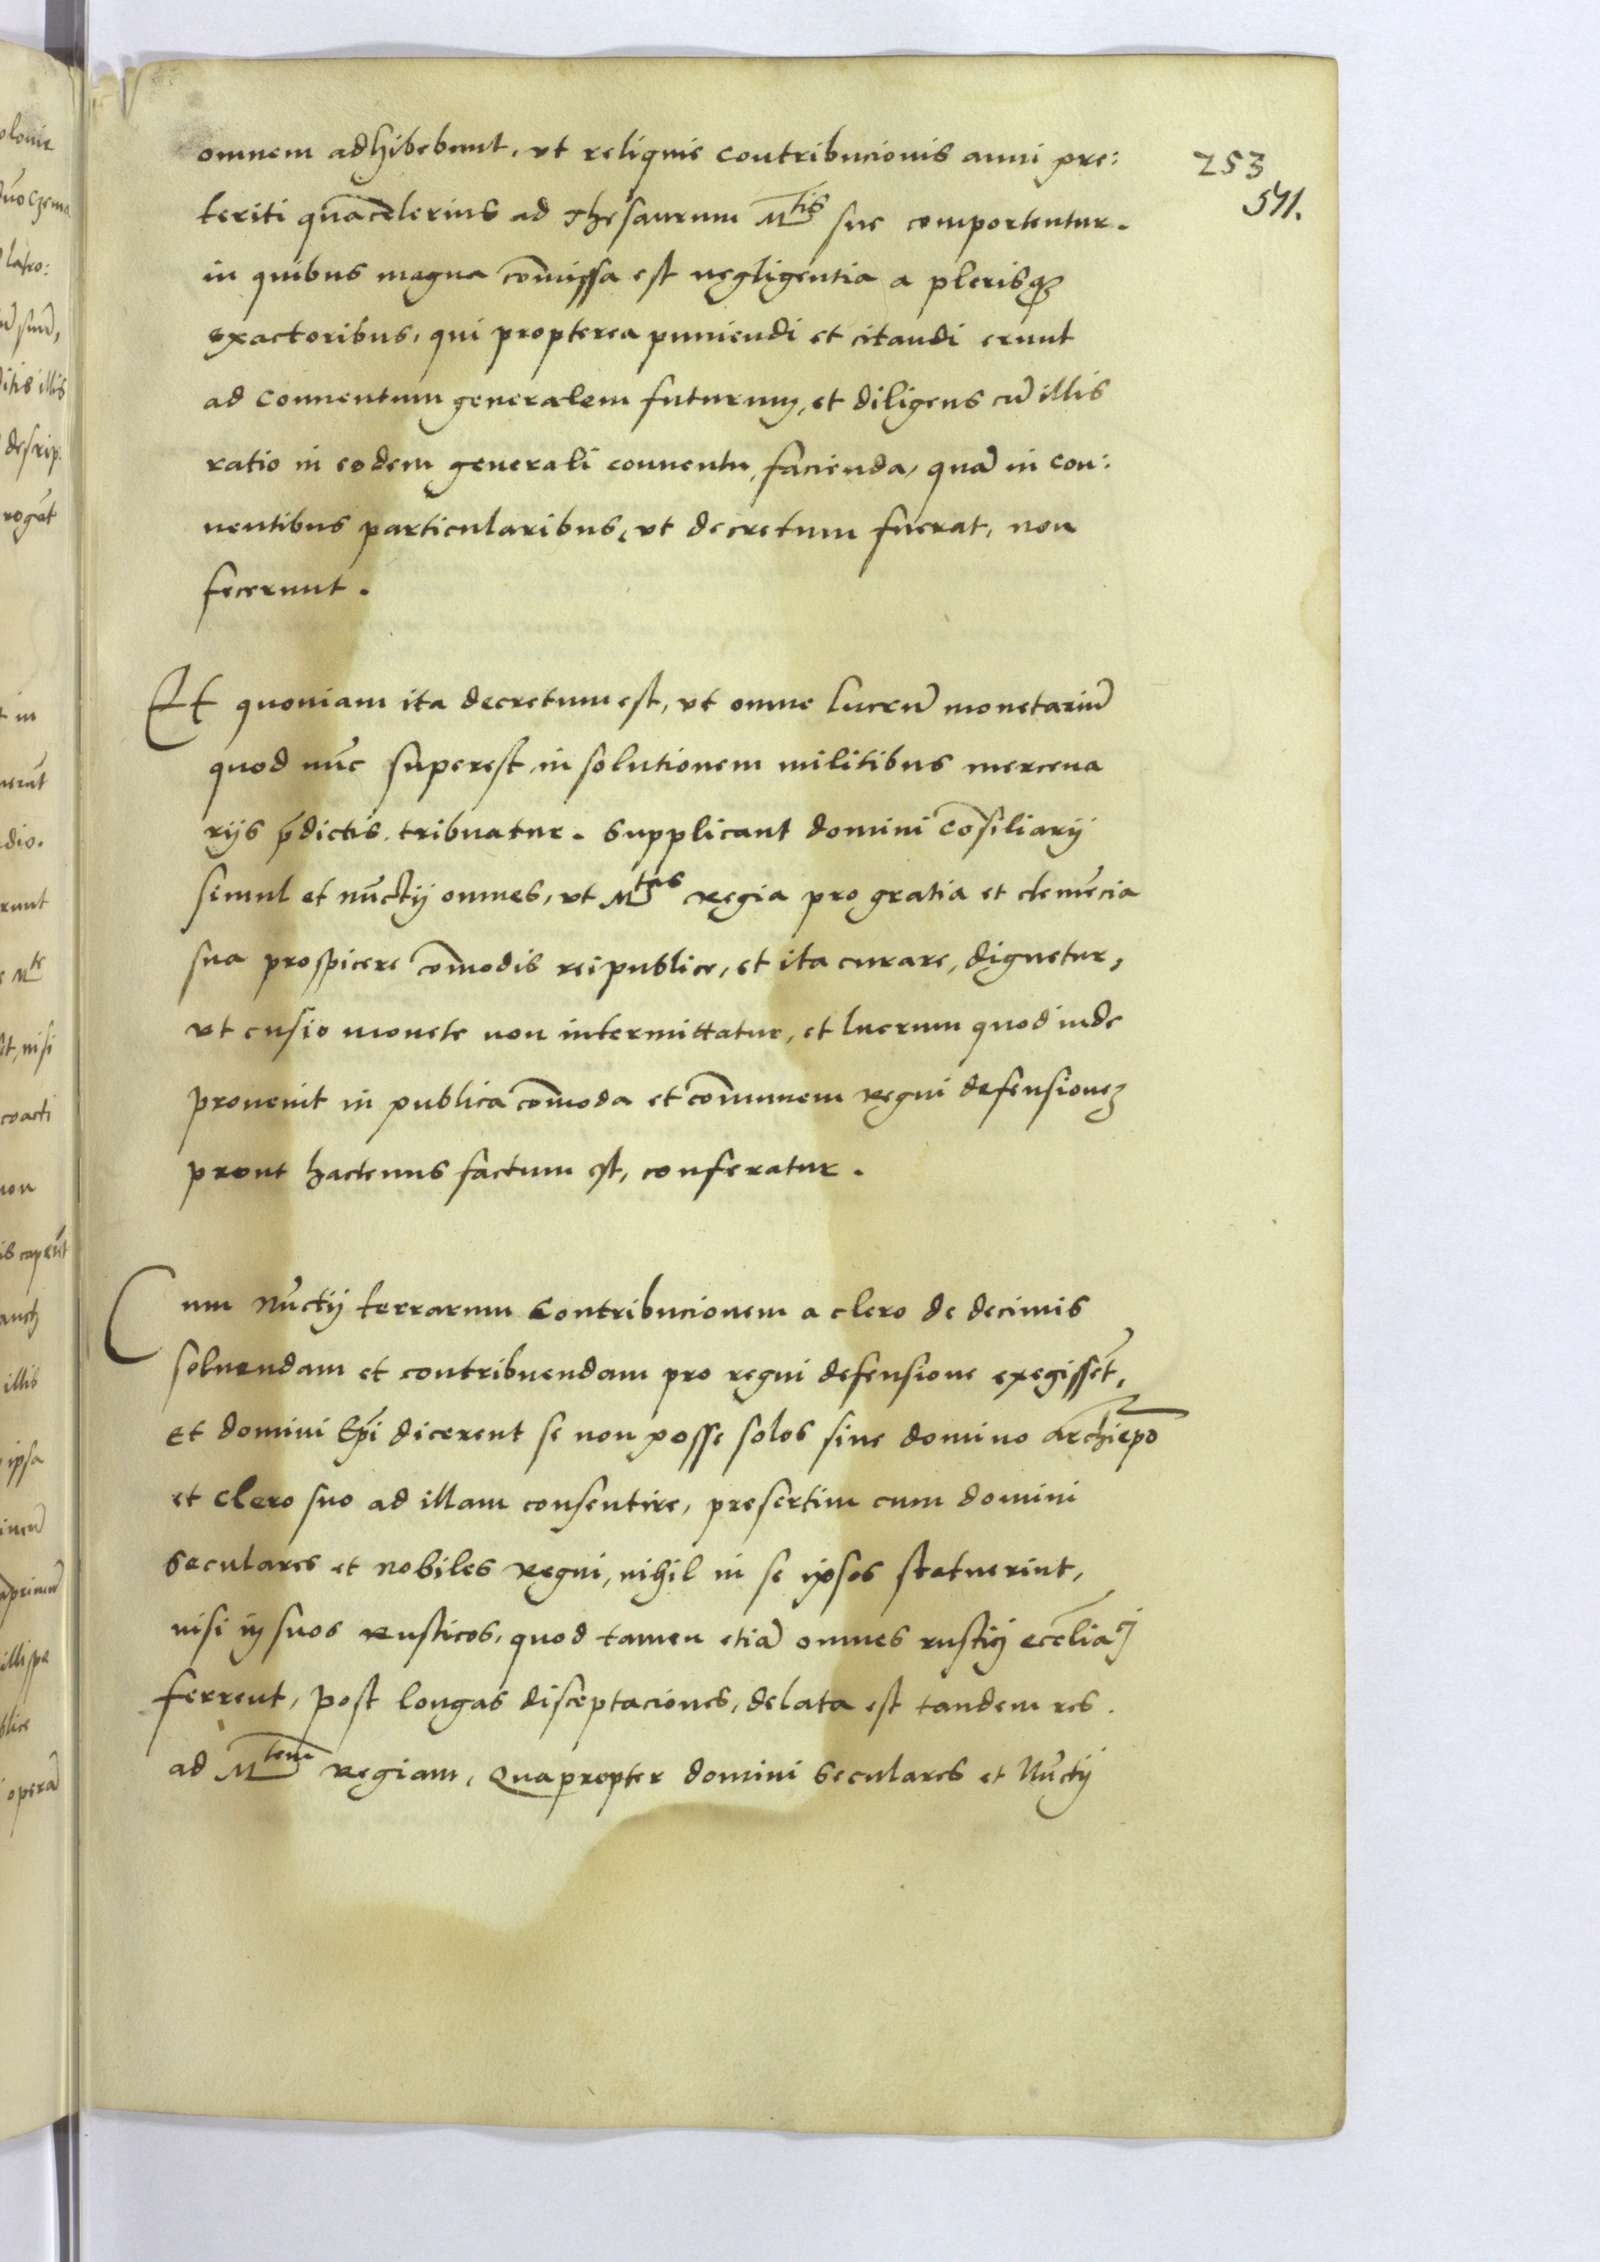 253
541.
omnem adhibebunt, vt reliquie contribucionis anni pre:
teriti qua͠celerius ad Thesaurum Mtis sue comportentur.
in quibus magna co͠missa est negligentia a plerisqꝫ
exactoribus, qui propterea puniendi et citandi erunt
ad Conuentum generalem futurum, et diligens cu͠ illis
ratio in eodem generali conuentu facienda, qua͠ in con:
uentibus particularibus, vt decretum fuerat, non
fecerunt.
Et quoniam ita decretum est, vt omne lucru͠ monetariu͠
quod nu͠c superest in solutionem militibus mercena
rijs p͠dictis tribuatur. Supplicant domini Co͠siliarij
simul et nu͠ctij omnes, vt Mtas Regia pro gratia et cleme͠cia
sua prospicere co͠modis reipublice, et ita curare, dignetur,
vt cusio monete non intermittatur, et lucrum quod inde
prouenit in publica co͠moda et co͠munem Regni defensioneꝫ
prout hactenus factum est, conferatur.
Cum Nu͠ctij terrarum Contribucionem a clero de decimis
soluendam et contribuendam pro regni defensione exegisse͠t,
Et domini Ep͠i dicerent se non posse solos sine domino archiep͠o
et Clero suo ad illam consentire, presertim cum domini
Seculares et Nobiles Regni, nihil in se ipsos statuerint,
nisi in suos Rusticos, quod tamen etia͠ omnes rustici
ferrent, post longas disceptaciones, delata est tandem res.
ad Mtem Regiam, Quapropter domini Seculares et Nu͠ctij